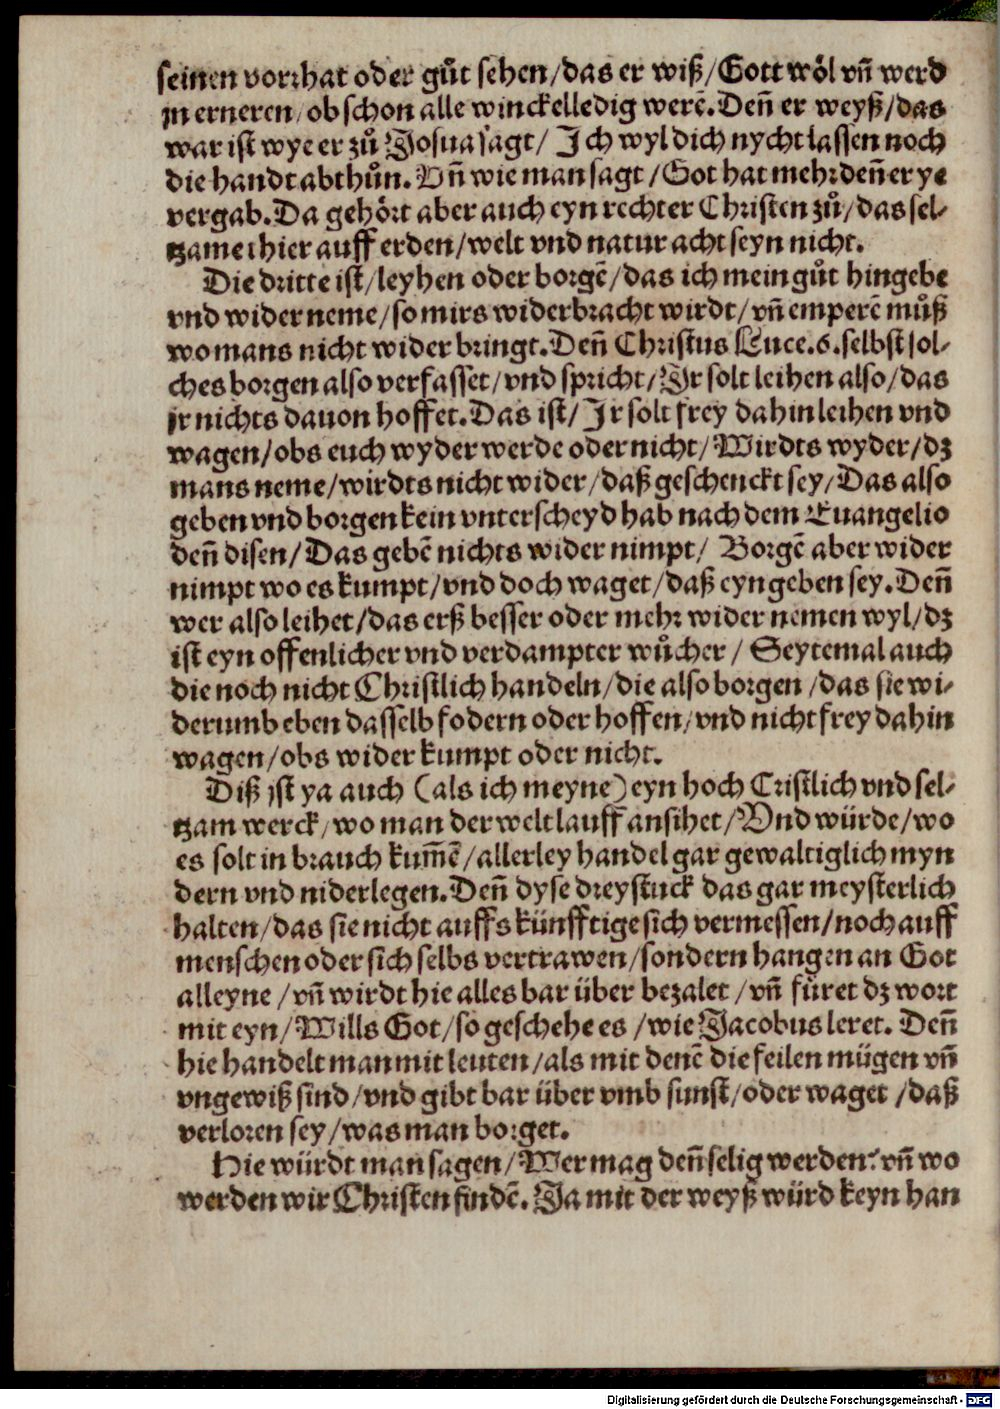 seinen vorrhat oder gůt sehen/das er wiß/Gott wöl vñ werd
jn erneren/ob schon alle winckel ledig werẽ. Deñ er weyß/das
war ist wye er zů Josua sagt/ Ich wyl dich nycht lassen noch
die handt abthůn. Vñ wie man sagt/Got hat mehr deñ er ye
vergab. Da gehört aber auch eyn rechter Christen zů/das sel-
tzame thier auff erden/welt vnd natur acht seyn nicht.
Die dritte ist/leyhen oder borgẽ/das ich mein gůt hingebe
vnd wider neme/so mirs widerbracht wirdt/vñ emperẽ můß
wo mans nicht wider bringt. Deñ Christus Luce.6.selbst sol-
ches borgen also verfasset/vnd spricht/Ir solt leihen also/das
jr nichts dauon hoffet. Das ist/Ir solt frey dahin leihen vnd
wagen/obs euch wyder werde oder nicht/Wirdts wyder/dz
mans neme/wirdts nicht wider/daß geschenckt sey/Das also
geben vnd borgen kein vnterscheyd hab nach dem Euangelio
deñ disen/Das gebẽ nichts wider nimpt/ Borgẽ aber wider
nimpt wo es kumpt/vnd doch waget/daß eyn geben sey. Deñ
wer also leihet/das erß besser oder mehr wider nemen wyl/dz
ist eyn offenlicher vnd verdampter wůcher/ Seytemal auch
die noch nicht Christlich handeln/die also borgen/das sie wi-
derumb eben dasselb fodern oder hoffen/vnd nicht frey dahin
wagen/obs wider kumpt oder nicht.
Diß jst ya auch (als ich meyne) eyn hoch Cristlich vnd sel-
tzam werck/wo man der welt lauff ansihet/Vnd würde/wo
es solt in brauch kum̃ẽ/allerley handel gar gewaltiglich myn
dern vnd niderlegen. Deñ dyse drey stuck das gar meysterlich
halten/das sie nicht auffs künfftige sich vermessen/noch auff
menschen oder sich selbs vertrawen/sondern hangen an Got
alleyne/vñ wirdt hie alles bar über bezalet/vñ füret dz wort
mit eyn/Wills Got/so geschehe es/wie Jacobus leret. Deñ
hie handelt man mit leuten/als mit denẽ die feilen mügen vñ
vngewiß sind/vnd gibt bar über vmb sunst/oder waget/daß
verloren sey/was man borget.
Hie würdt man sagen/Wer mag deñ selig werden? vñ wo
werden wir Christen findẽ. Ja mit der weyß würd keyn han
Digitalisierung gefördert durch die Deutsche Forschungsgemeinschaft - DFG